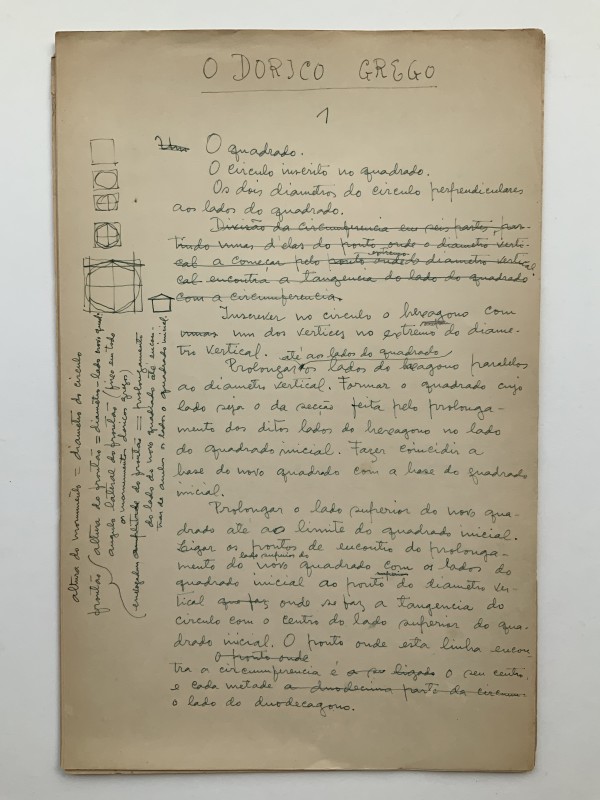 O DORICO GREGO
1
Um O quadrado.
O circulo inscrito no quadrado.
Os dois diametros do circulo perpendiculares
aos lados do quadrado.
Divisão da circumferencia em seis partes, par-
tindo umas d'elas do ponto onde o diametro verti-
cal a começar pelo ponto onde do extremo diametro vertical
cal encontra a tangencia do lado do quadrado
com a circumferencia.
Inscrever no circulo o hexagono com
umas um dos vertices no extremo do diame-
tro vertical.
até aos lados do quadrado
Prolongar os lados do hexagono paralelos
ao diametro vertical. Formar o quadrado cujo
lado seja o da secção feita pelo prolonga-
mento dos ditos lados do hexagono no lado
do quadrado inicial. Fazer coincidir a
base do novo quadrado com a base do quadrado
inicial.
Prolongar o lado superior do novo qua-
drado até ao limite do quadrado inicial.
Ligar os pontos de encontro do prolonga-
lado superior do
mento do novo quadrado com os lados do
quadrado inicial ao ponto do diametro ver-
tical que faz onde se faz a tangencia do
circulo com o centro do lado superior do qua-
drado inicial. O ponto onde esta linha encon-
o ponto onde
tra a circumferencia é a ser ligado o seu centro.
e cada metade a duodecima parte da circum-
o lado do duodecagono.
altura do monumento = diametro do circulo
frontão
altura do frontão = diametro - lado novo quad.
angulo lateral do frontão (fixo em todo
os monumentos doricos gregos)
amplitude do frontão = prolongamento
do lado do novo quadrado até encon-
trar de ambos os lados o quadrado inicial.